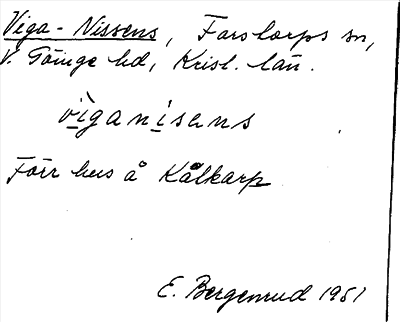 Viga-Nissens, Farstorps sn,
V. Göinge hd, Krist. län.
viganisens
Förr hus å Kålkarp
E. Bergenrud 1951